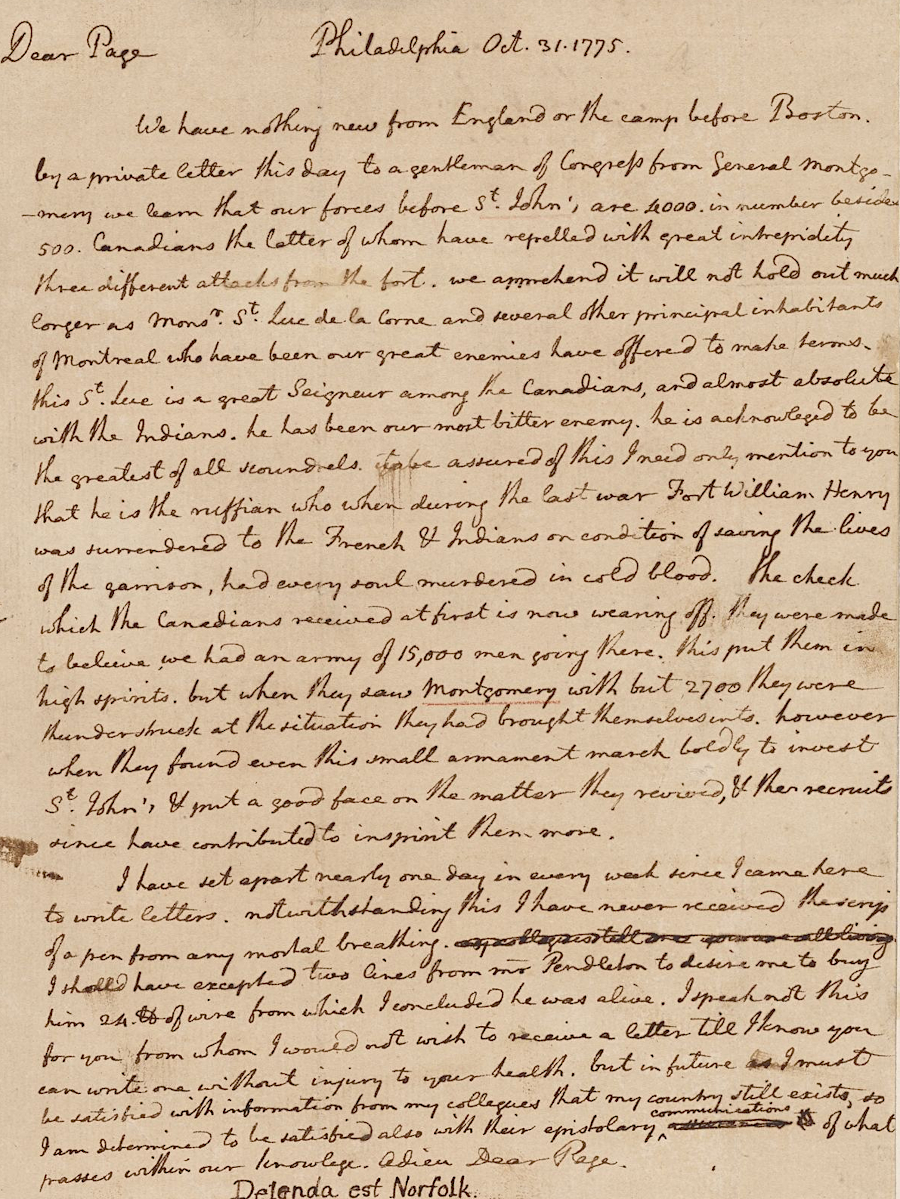 Dear Page
Philadelphia Oct. 31. 1775.
We have nothing new from England or the camp before Boston.
by a private letter this day to a gentleman of Congress from General Montgo-
-mery we learn that our forces before St. John's are 4000. in number beside
500. Canadians the latter of whom have repelled with great intrepidity
three different attacks from the fort. we apprehend it will not hold out much
longer as Monsr. St. Luc de la Corne and several other principal inhabitants
of Montreal who have been our great enemies have offered to make terms.
this St. Luc is a great Seigneur among the Canadians, and almost absolute
with the Indians. he has been our most bitter enemy. he is acknowleged to be
the greatest of all scoundrels. to be assured of this I need only mention to you
that he is the ruffian who when during the last war Fort William Henry
was surrendered to the French & Indians on condition of saving the lives
of the garrison, had every soul murdered in cold blood. The check
which the Canadians received at first is now wearing off. they were made
to believe we had an army of 15,000 men going there. this put them in
high spirits. but when they saw Montgomery with but 2700 they were
thunderstruck at the situation they had brought themselves into. however
when they found even this small armament march boldly to invest
St. John's, & put a good face on the matter they revived, & the recruits
since have contributed to inspirit them more.
I have set apart nearly one day in every week since I came here
to write letters. notwithstanding this I have never received the scrip
of a pen from any mortal breathing.
I should have excepted two lines from mr Pendleton to desire me to buy
him 24. lb of wire from which I concluded he was alive. I speak not this
for you from whom I would not wish to receive a letter till I know you
can write one without injury to your health. but in future as I must
be satisfied with information from my collegues that my country still exists, so
I am determined to be satisfied also with their epistolary communications of what
passes within our knowlege. Adieu Dear Page.
Delenda est Norfolk.